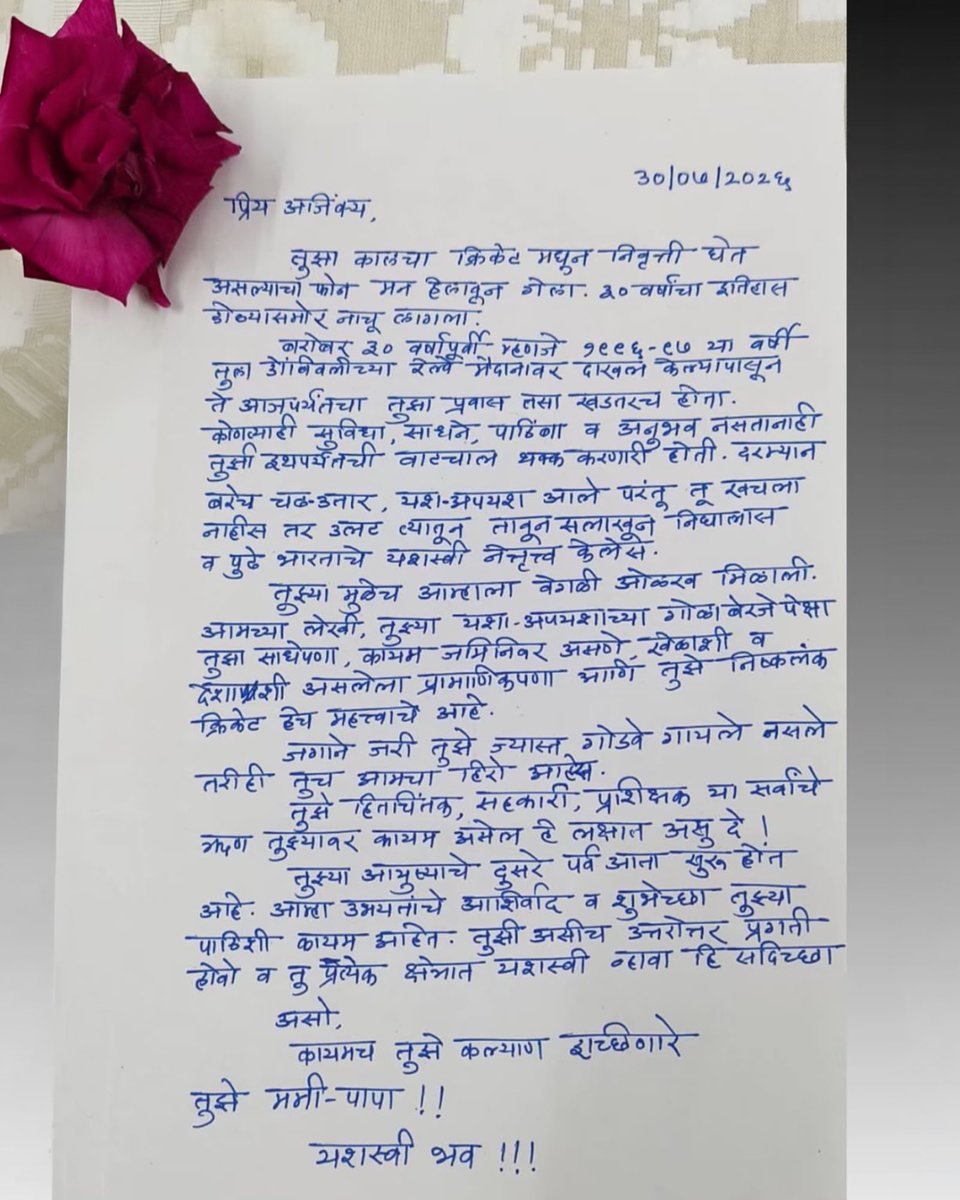 ३०/०७/२०२६
प्रिय अजिंक्य,
तुझा कालचा क्रिकेट मधून निवृत्ती घेत
असल्याचा फोन मन हेलावून गेला. ३० वर्षांचा इतिहास
डोळ्यासमोर नाचू लागला.
बरोबर ३० वर्षांपूर्वी म्हणजे १९९६-९७ या वर्षी
तुला डोंबिवलीच्या रेल्वे मैदानावर दाखल केल्यापासून
ते आजपर्यंतचा तुझा प्रवास तसा खडतरच होता.
कोणत्याही सुविधा, साधने, पाठिंबा व अनुभव नसतानाही
तुझी इथपर्यंतची वाटचाल थक्क करणारी होती. दरम्यान
बरेच चढ-उतार, यश-अपयश आले परंतू तू खचला
नाहीस तर उलट त्यातून तावून सलाखून निघालास
व पुढे भारताचे यशस्वी नेतृत्त्व केलेस.
तुझ्या मुळेच आम्हाला वेगळी ओळख मिळाली.
आमच्या लेखी, तुझ्या यशा-अपयशाच्या गोळाबेरजे पेक्षा
तुझा साधेपणा, कायम जमिनिवर असणे, खेळाशी व
देशाशी असलेला प्रामाणिकपणा आणि तुझे निष्कलंक
क्रिकेट हेच महत्त्वाचे आहे.
जगाने जरी तुझे ज्यास्त गोडवे गायले नसले
तरीही तुच आमचा हिरो आहेस.
तुझे हितचिंतक, सहकारी, प्रशिक्षक या सर्वांचे
ऋण तुझ्यावर कायम असेल हे लक्षात असु दे!
तुझ्या आयुष्याचे दुसरे पर्व आता सुरू होत
आहे. आम्हा उभयतांचे आशिर्वाद व शुभेच्छा तुझ्या
पाठिशी कायम आहेत. तुझी अशीच उत्तरोत्तर प्रगती
होवो व तु प्रत्येक क्षेत्रात यशस्वी व्हावा हि सदिच्छा
असो,
कायमच तुझे कल्याण इच्छिणारे
तुझे ममी-पापा !!
यशस्वी भव !!!